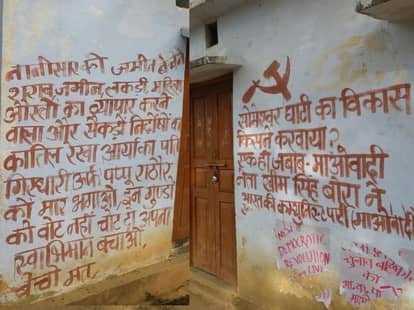 तानीसार को जमीन
शराब, जमीन, लकड़ी, महिला
औरतों का व्यापार करने
वाला और सैकड़ों निर्दोषों का
कातिल रेखा आर्या का पति
गिरधारी उर्फ पप्पू राठौर
को मार भगाओ, इन गुण्डों
को वोट नहीं चोट दो, अपना
स्वाभिमान बचाओ,
बेचो मत,
सोमेश्वर घाटी का विकास
किसने करवाया?
एक ही जवाब- माओवादी
नेता खीम सिंह बोरा ने,
भारत की कम्युनिस्ट पार्टी (माओवादी)
NEW
DEMOCRATIC
REVOLUTION
LIVE
चुनाव बहिष्कार
का